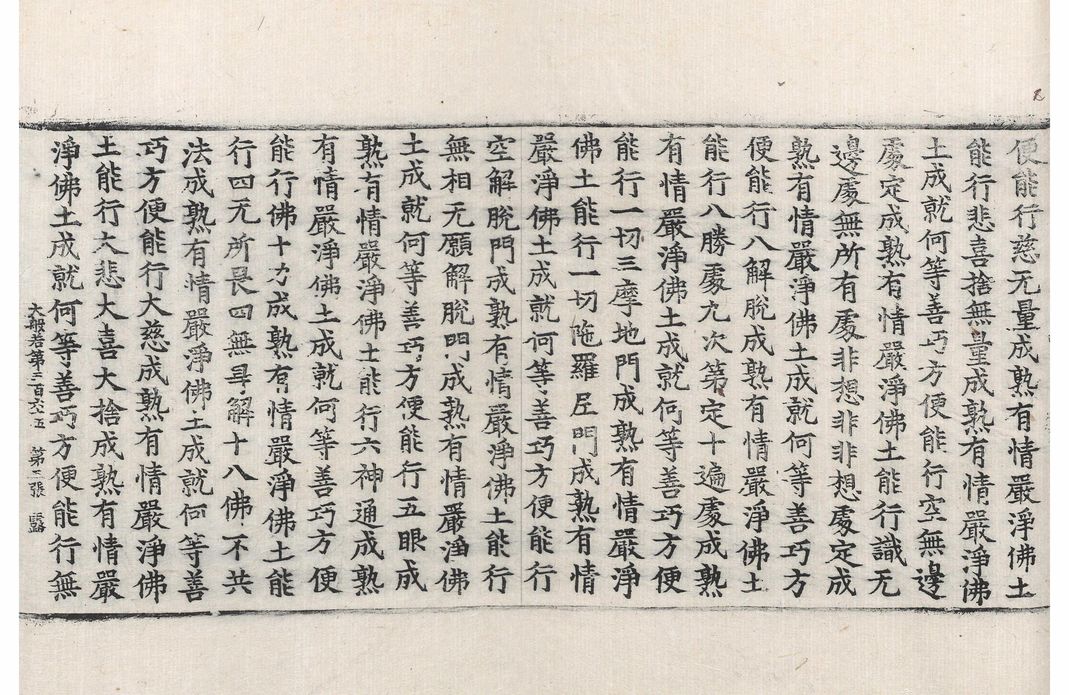 便能行慈无量成熟有情嚴淨佛土
能行悲喜捨無量成熟有情嚴淨佛
土成就何等善巧方便能行空無邊
處定成熟有情嚴淨佛土能行識无
邊處無所有處非想非非想處定成
熟有情嚴淨佛土成就何等善巧方
便能行八解脫成熟有情嚴淨佛土
能行八勝處九次第定十遍處成熟
有情嚴淨佛土成就何等善巧方便
能行一切三摩地門成熟有情嚴淨
佛土能行一切陁羅尼門成熟有情
嚴淨佛土成就何等善巧方便能行
空解脫門成熟有情嚴淨佛土能行
無相无願解脫門成熟有情嚴淨佛
土成就何等善巧方便能行五眼成
熟有情嚴淨佛土能行六神通成熟
有情嚴淨佛土成就何等善巧方便
能行佛十力成熟有情嚴淨佛土能
行四无所畏四無㝵解十八佛不共
法成熟有情嚴淨佛土成就何等善
巧方便能行大慈成熟有情嚴淨佛
土能行大悲大喜大捨成熟有情嚴
淨佛土成就何等善巧方便能行無
大般若第三百六十五 第三張